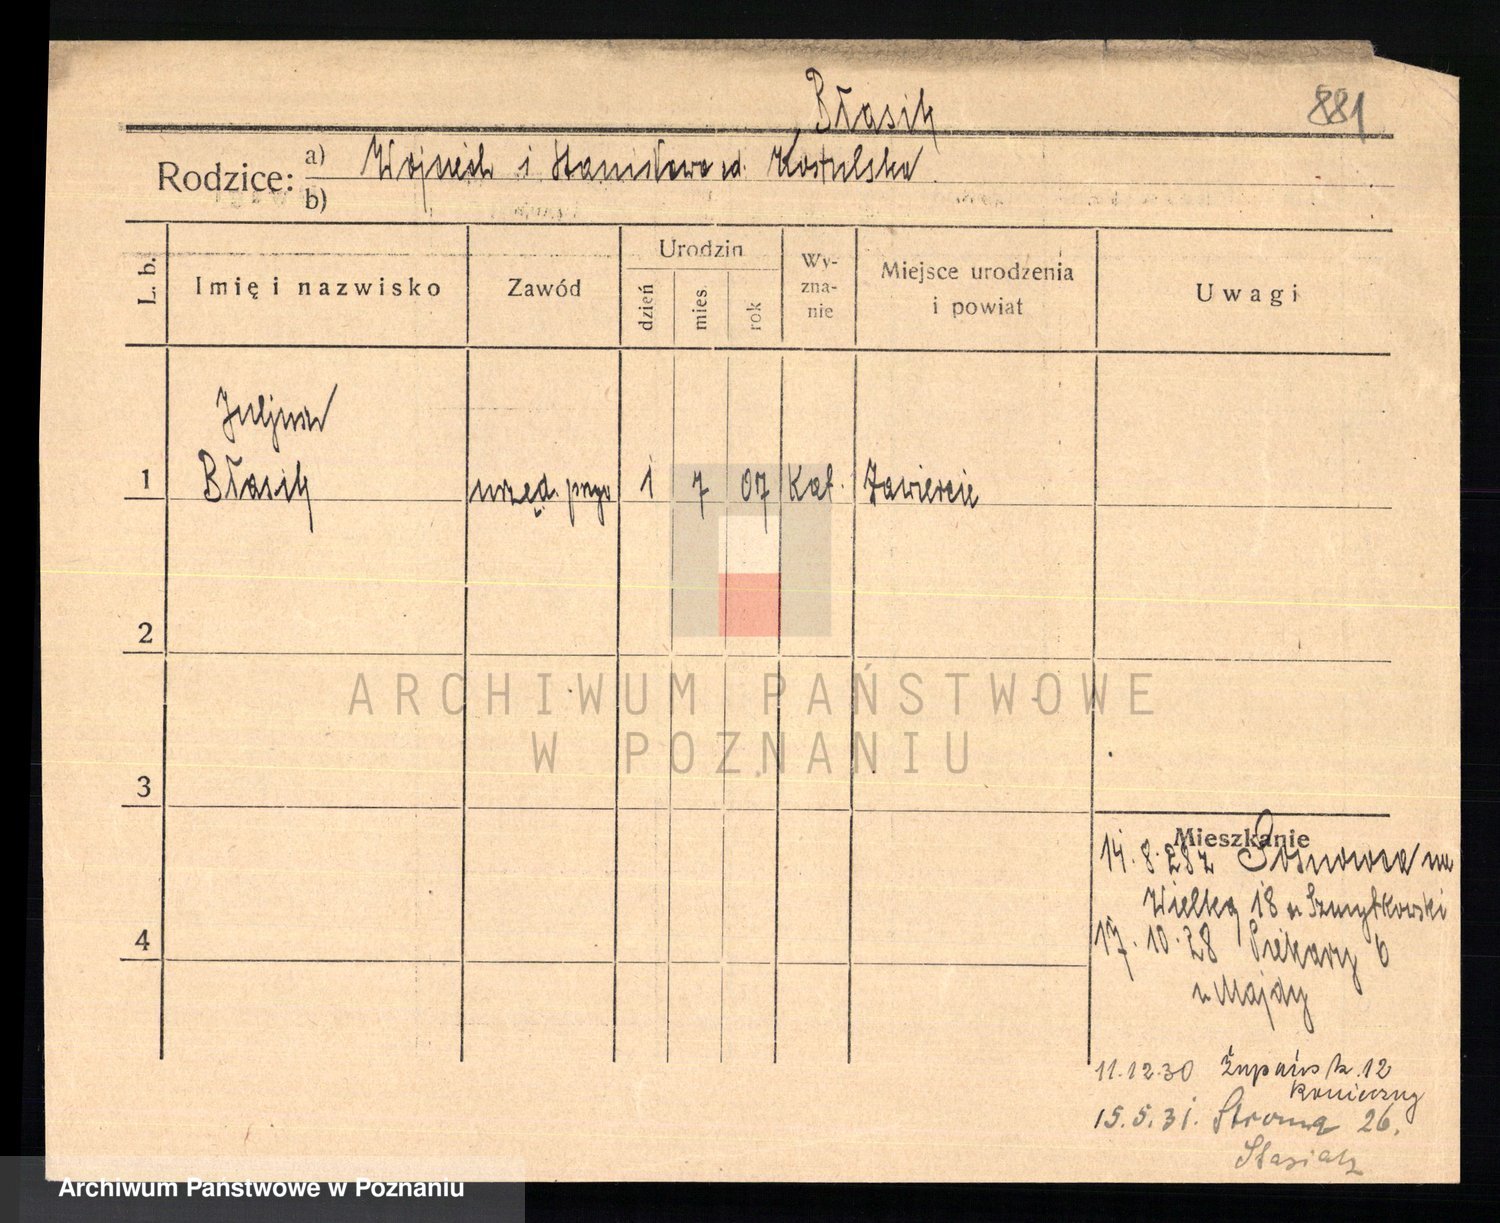 Błasik
881
Rodzice:
a) Wojciech i Stanisława zd. Kostulska
b)
L. b.
Imię i nazwisko
Zawód
Urodzin
dzień
mies.
rok
Wy-
zna-
nie
Miejsce urodzenia
i powiat
Uwagi
Juljan
1 Błasik urzęd. 1 7 07 Kat. Zawiercie
2
ARCHIWUM PAŃSTWOWE
W POZNANIU
3
Mieszkanie
14. 8. 28 z Sosnowca na
Wielką 18 u Szmytkowski
4
17. 10. 28 Piekary 6
u Majdy
11.12.30 Żupańsk. 12
Konieczny
15.5.31. Stroma 26.
Stasiak
Archiwum Państwowe w Poznaniu